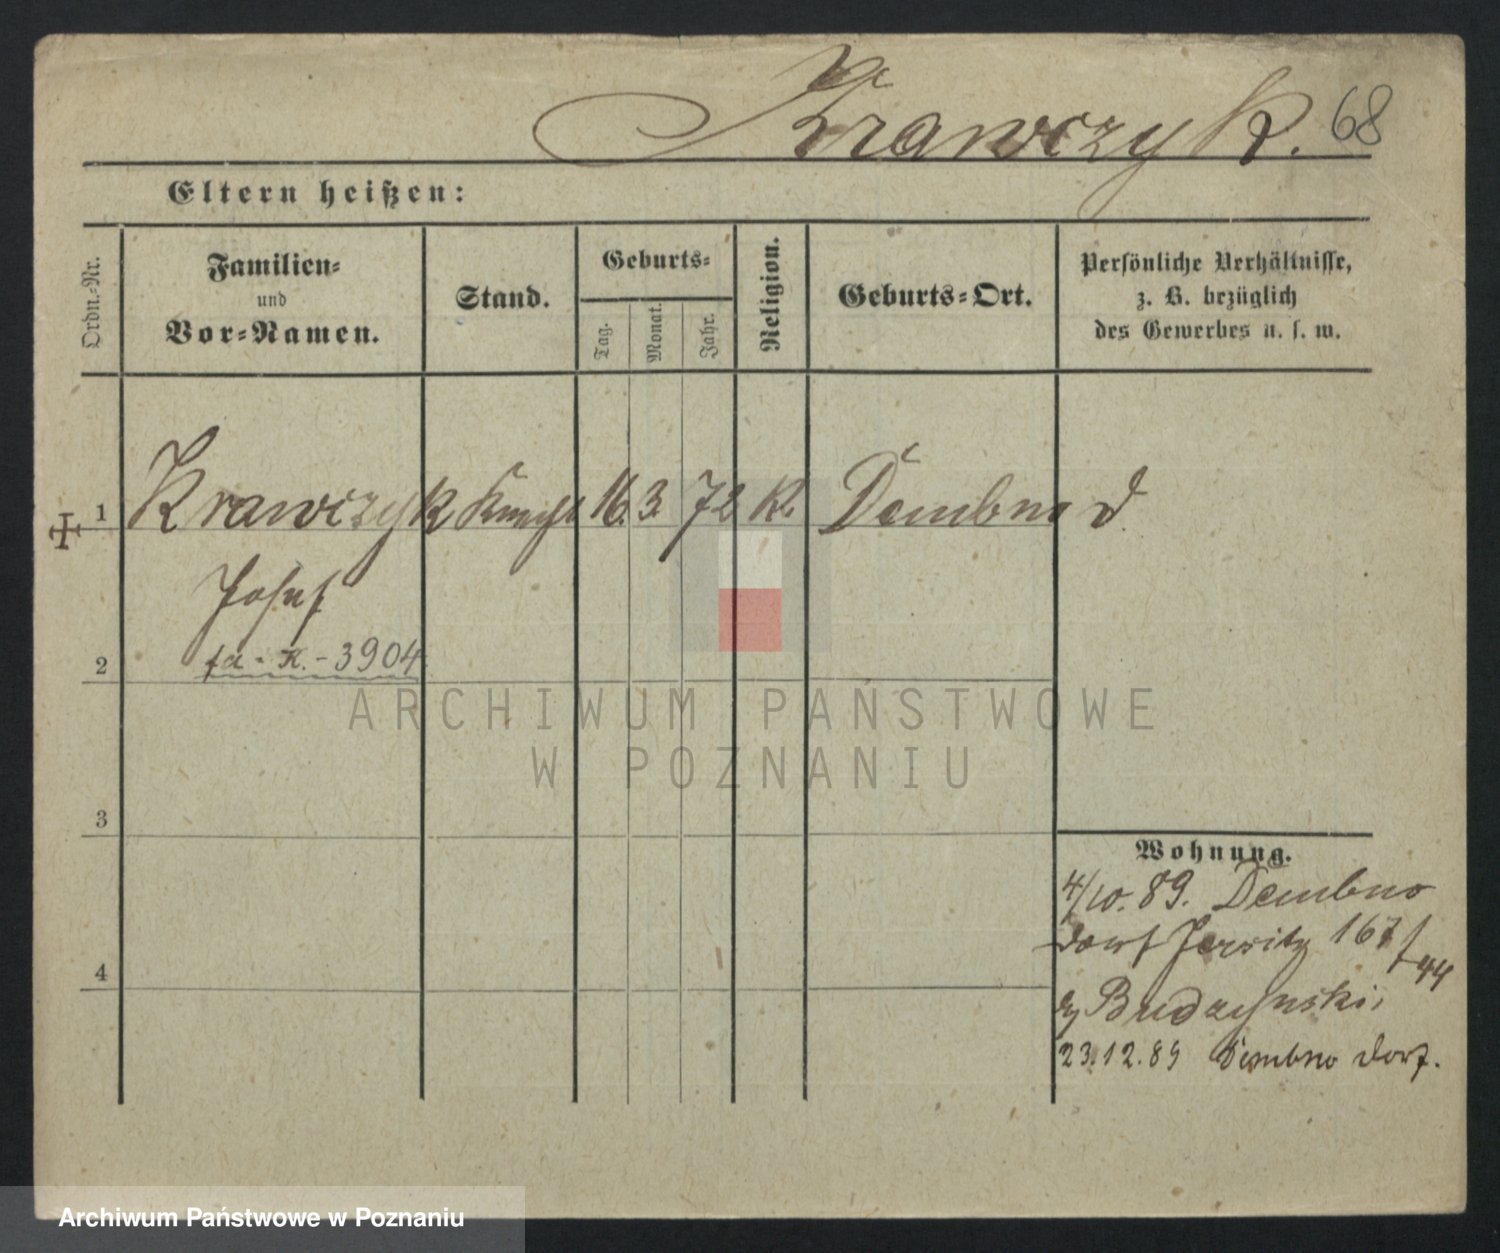 Krawczyk. 68
Eltern heißen:
Ordn.-Nr.
Familien-
und
Vor-Namen.
Stand.
Geburts-
Tag.
Monat.
Jahr.
Religion.
Geburts-Ort.
Persönliche Verhältnisse,
z. B. bezüglich
des Gewerbes u. s. w.
1 Krawczyk Knecht 16. 3. 72 K. Dembno d
Josef
2 fa-K.-3904
ARCHIWUM PAŃSTWOWE
W POZNANIU
3
Wohnung.
4/10. 89. Dembno
dorf Jersitz 167/44
4
by Budzynski,
23.12.89 Dembno dorf.
Archiwum Państwowe w Poznaniu